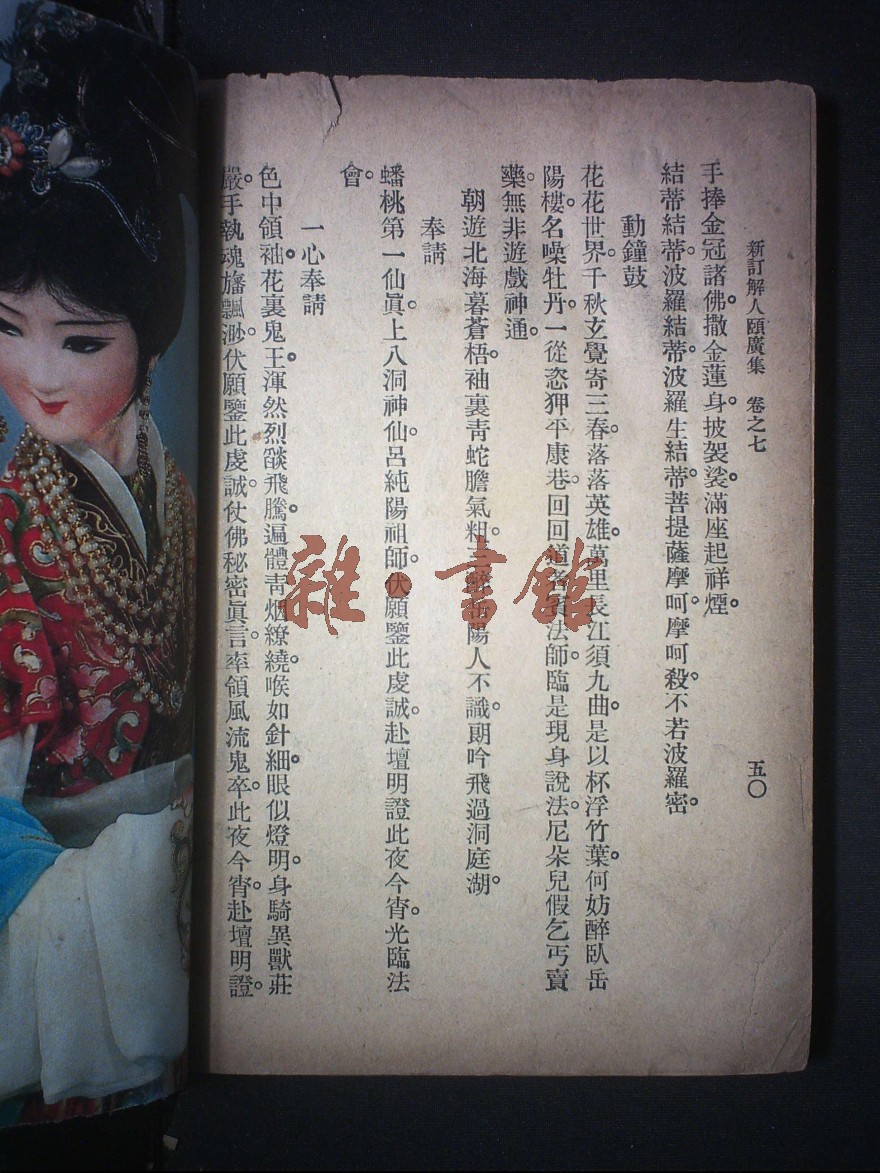 新訂解人頤廣集 卷之七 五〇
手捧金冠諸佛。撒金蓮身。披袈裟。滿座起祥煙。
結蒂結蒂。波羅結蒂。波羅生結蒂。菩提薩摩呵。摩呵殺。不若波羅密。
動鐘鼓
花花世界。千秋玄覺寄三春。落落英雄。萬里長江須九曲。是以杯浮竹葉。何妨醉臥岳
陽樓。名噪牡丹。一從恣狎平康巷。回回道法師。臨是現身說法。尼朵兒假乞丐賣
藥。無非遊戲神通。
朝遊北海暮蒼梧。袖裏青蛇膽氣粗。陽人不識。朗吟飛過洞庭湖。
奉請
蟠桃第一仙眞。上八洞神仙。呂純陽祖師。伏願鑒此虔誠。赴壇明證此夜今宵。光臨法
會。
一心奉請
色中領袖。花裏鬼王。渾然烈燄飛騰。遍體靑烟繚繞。喉如針細。眼似燈明。身騎異獸莊
嚴。手執魂旛飄渺。伏願鑒此虔誠。仗佛秘密眞言。率領風流鬼卒。此夜今宵。赴壇明證。
雜·書館